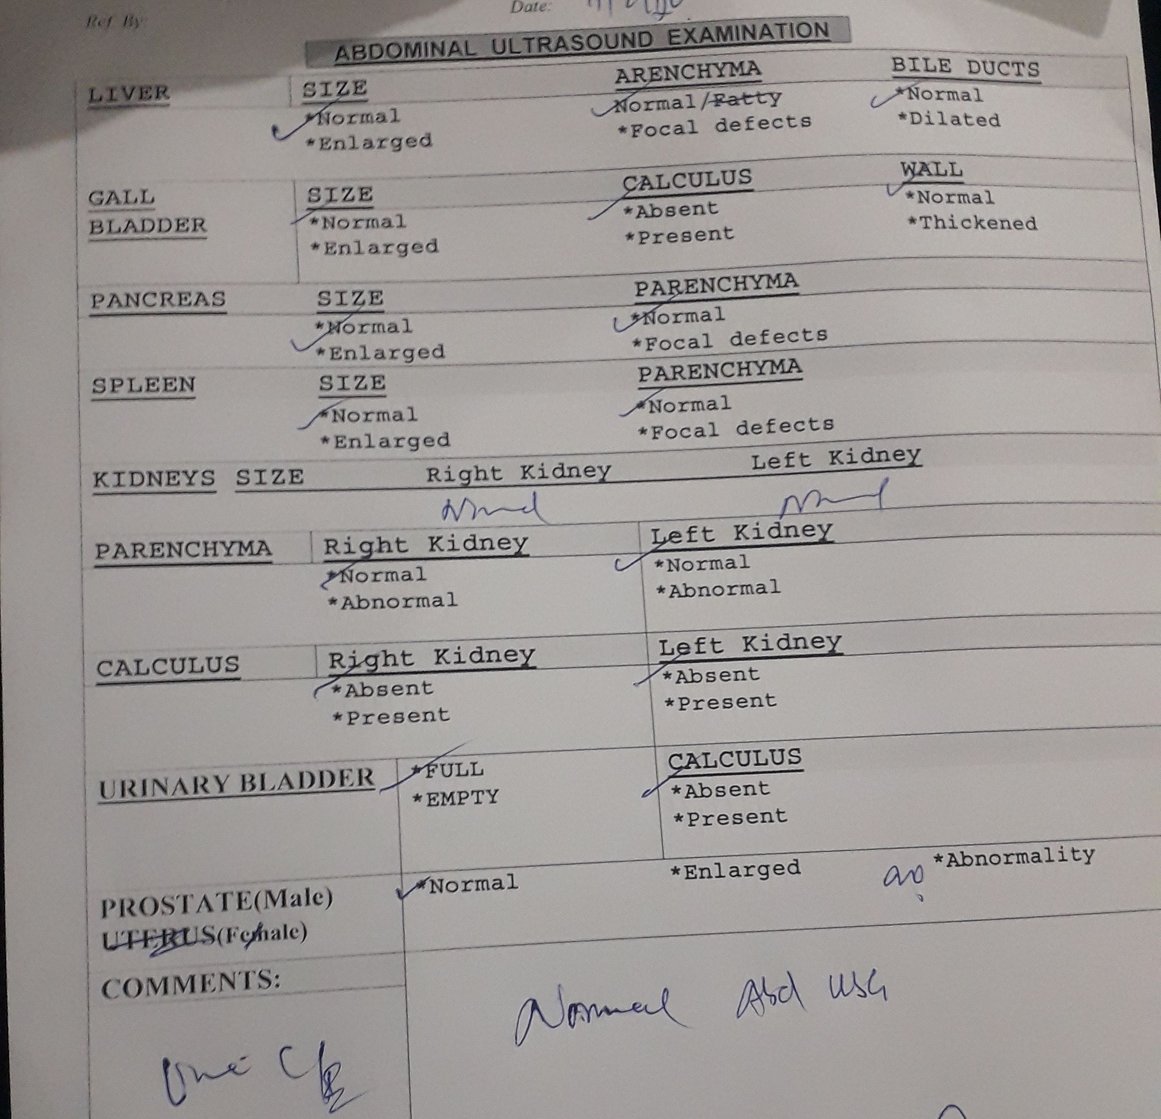 Ref By:
Date:
ABDOMINAL ULTRASOUND EXAMINATION
LIVER SIZE ARENCHYMA BILE DUCTS
*Normal Normal/Fatty *Normal
*Enlarged *Focal defects *Dilated
GALL SIZE CALCULUS WALL
BLADDER *Normal *Absent *Normal
*Enlarged *Present *Thickened
PANCREAS SIZE PARENCHYMA
*Normal *Normal
*Enlarged *Focal defects
SPLEEN SIZE PARENCHYMA
*Normal *Normal
*Enlarged *Focal defects
KIDNEYS SIZE Right Kidney Left Kidney
Normal Normal
PARENCHYMA Right Kidney Left Kidney
*Normal *Normal
*Abnormal *Abnormal
CALCULUS Right Kidney Left Kidney
*Absent *Absent
*Present *Present
URINARY BLADDER *FULL CALCULUS
*EMPTY *Absent
*Present
PROSTATE(Male) *Normal *Enlarged no *Abnormality
UTERUS(Female)
COMMENTS:
Normal Abd USG
Urine C/E